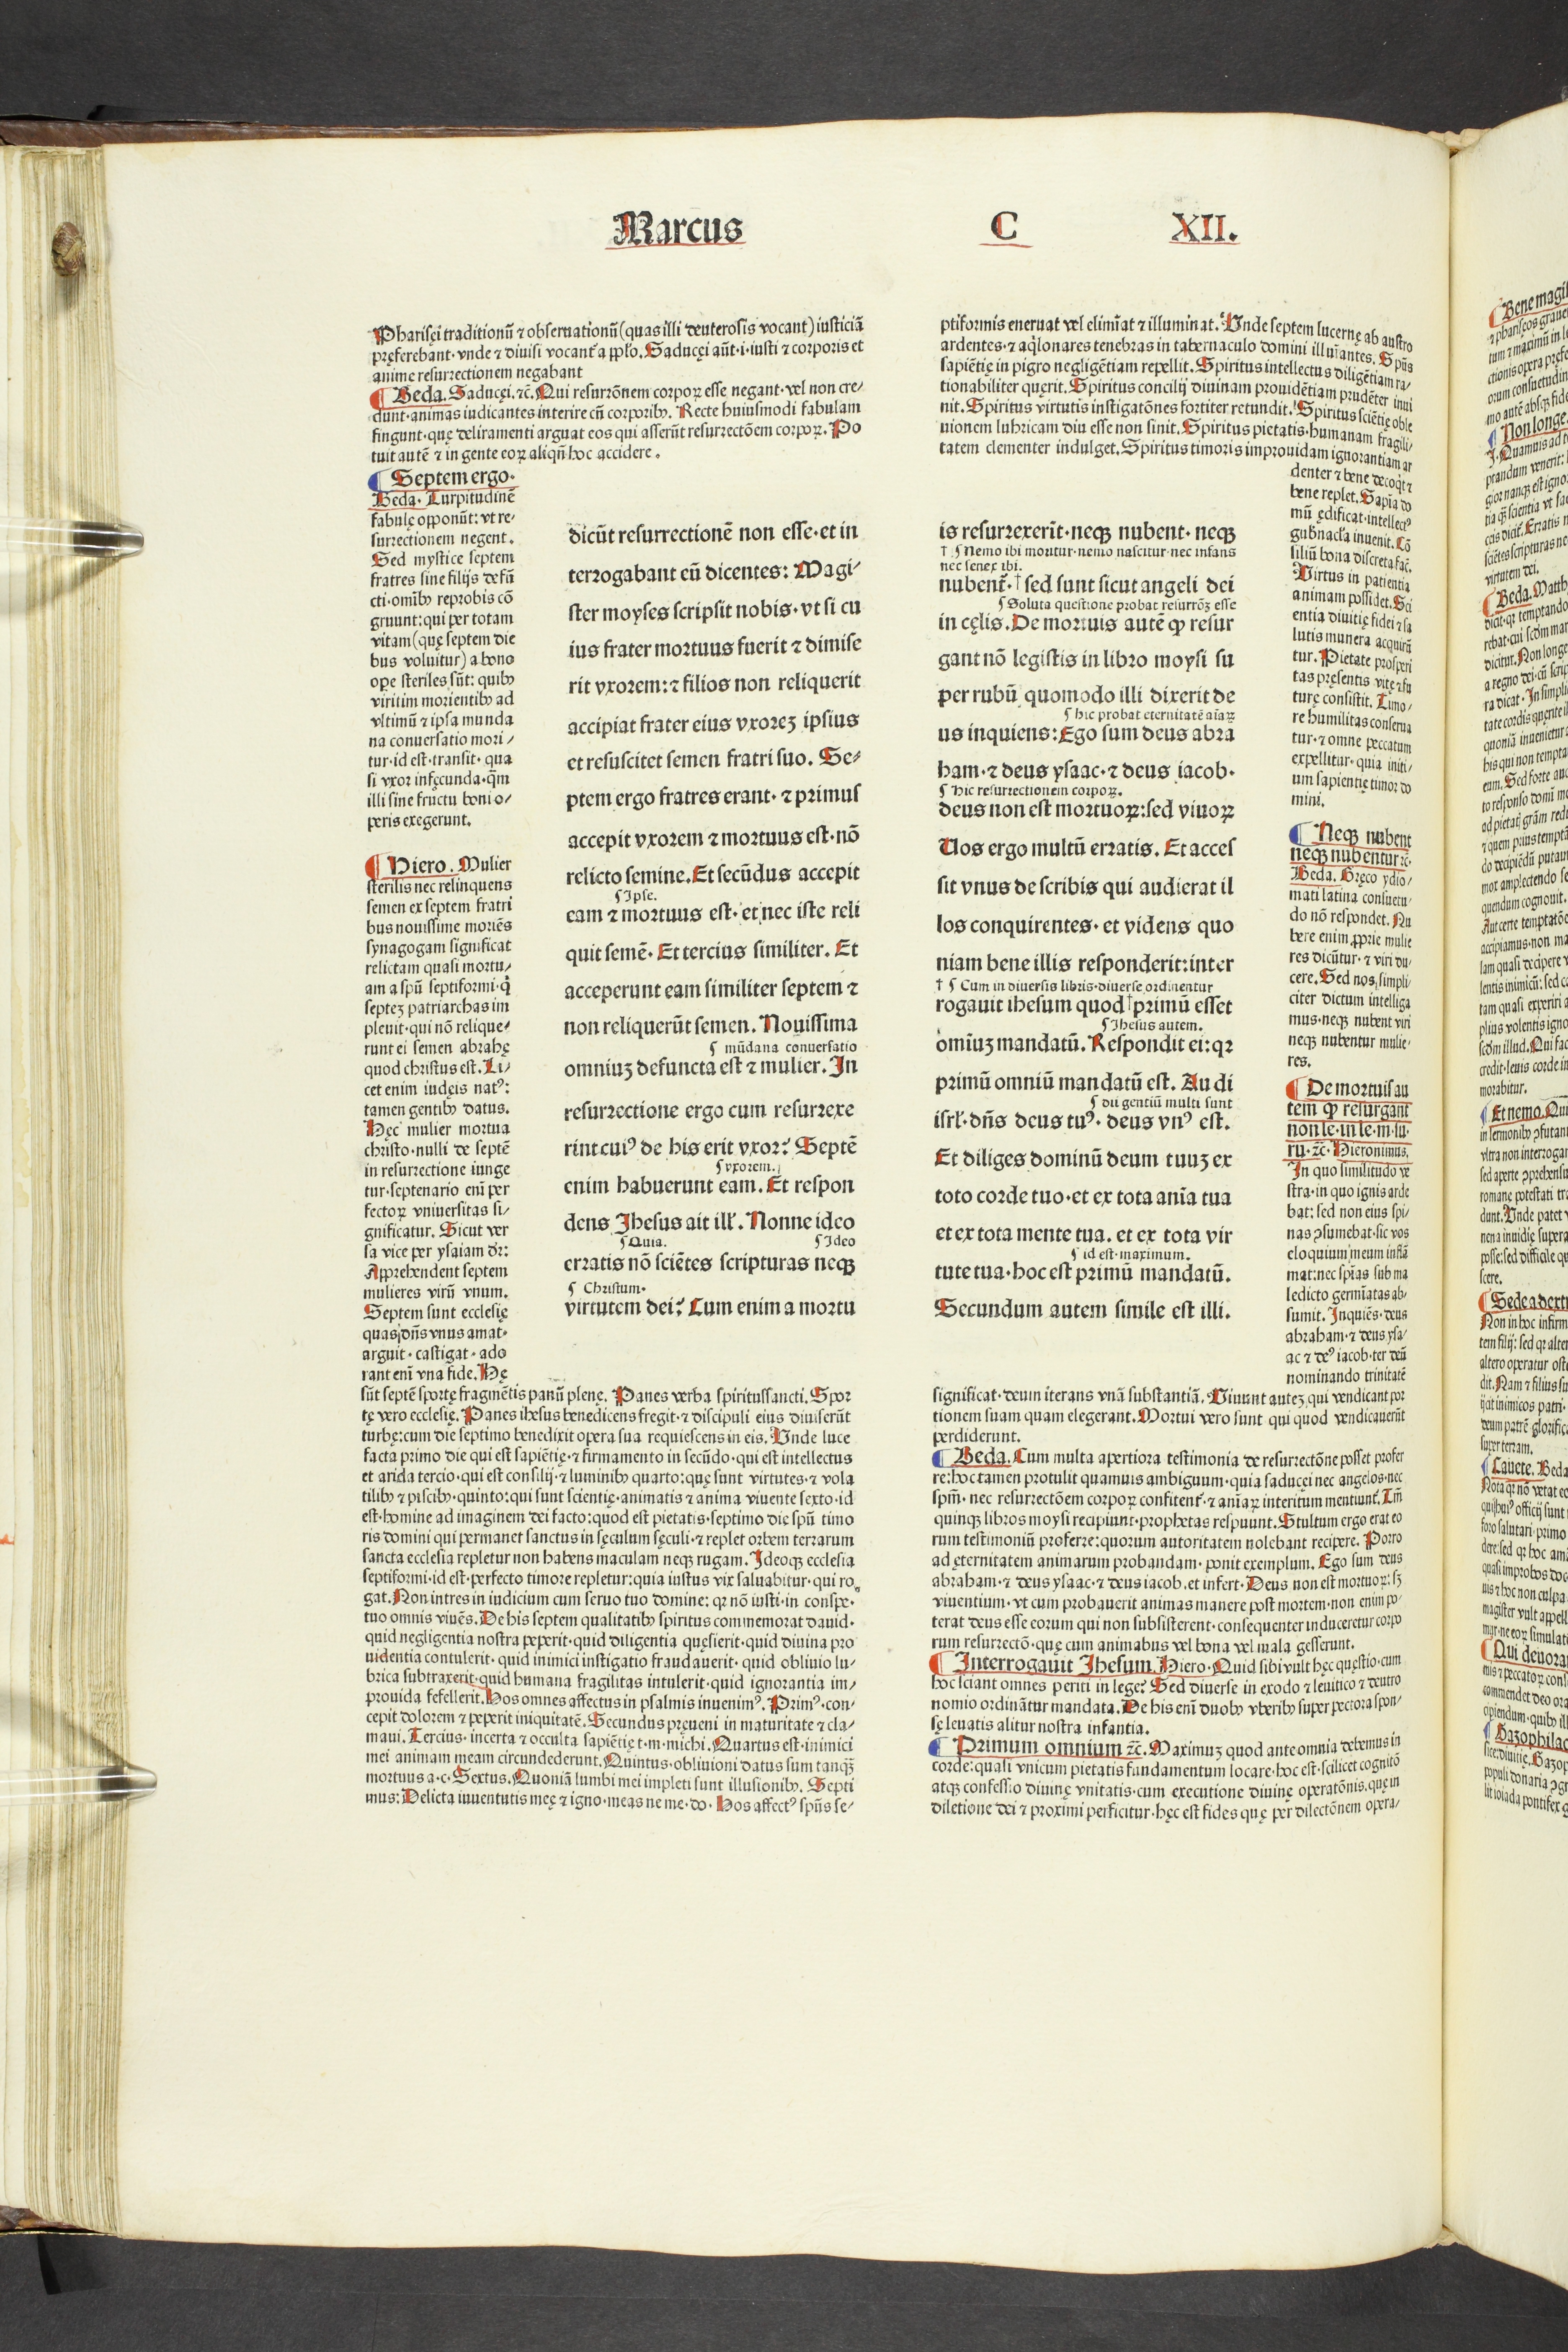 Marcus C XII.
Pharisęi traditionū ⁊ obseruationū (quas illi deuterosis vocant) iusticiā
pręferebant· vnde ⁊ diuisi vocant᷑ a pp̄lo. Saducęi aūt·i·iusti ⁊ corporis et
anime resurrectionem negabant
Beda. Saducęi.⁊c̄. Qui resurrōnem corpoꝝ esse negant·vel non cre⸗
dunt·animas iudicantes interire cū corporibꝰ. Recte huiusmodi fabulam
fingunt·quę deliramenti arguat eos qui asserūt resurrectōem corpoꝝ. Po
tuit autē ⁊ in gente eoꝝ aliqn̄ hoc accidere.
Septem ergo.
Beda. Turpitudinē
fabulę opponūt: vt re⸗
surrectionem negent.
Sed mystice septem
fratres sine filijs defū
cti·omībꝫ reprobis cō
gruunt: qui per totam
vitam (quę septem die
bus voluitur) a bono
ope steriles sūt: quibꝫ
viritim morientibꝫ ad
vltimū ⁊ ipsa munda
na conuersatio mori⸗
tur·id est·transit· qua
si vxor infęcunda·q̄m
illi sine fructu boni o⸗
peris exegerunt.
Hiero. Mulier
sterilis nec relinquens
semen ex septem fratri
bus nouissime moriēs
synagogam significat
relictam quasi mortu⸗
am a spū septiformi·q̄
septeꝫ patriarchas im
pleuit·qui nō relique⸗
runt ei semen abrahę
quod christus est. Li⸗
cet enim iudęis natꝰ:
tamen gentibꝫ datus.
Hęc mulier mortua
christo·nulli de septē
in resurrectione iunge
tur·septenario enī per
fectoꝝ vniuersitas si⸗
gnificatur. Sicut ver
sa vice per ysaiam dr̄:
Apprehendent septem
mulieres virū vnum.
Septem sunt ecclesię
quas dn̄s vnus amat·
arguit·castigat·ado
rant enī vna fide. Hę
sūt septē sportę fragmētis panū plenę. Panes verba spiritussancti. Spor
tę vero ecclesię. Panes ihesus benedicens fregit·⁊ discipuli eius diuiserūt
turbę: cum die septimo benedixit opera sua requiescens in eis. Vnde luce
facta primo die qui est sapiētię·⁊ firmamento in secūdo·qui est intellectus
et arida tercio·qui est consilij·⁊ luminibꝫ quarto: quę sunt virtutes·⁊ vola
tilibꝫ ⁊ piscibꝫ·quinto: qui sunt scientię·animatis ⁊ anima viuente sexto·id
est·homine ad imaginem dei facto: quod est pietatis·septimo die spū timo
ris domini qui permanet sanctus in sęculum sęculi·⁊ replet orbem terrarum
sancta ecclesia repletur non habens maculam neqꝫ rugam. Ideoqꝫ ecclesia
septiformi·id est·perfecto timore repletur: quia iustus vix saluabitur·qui ro
gat. Non intres in iudicium cum seruo tuo domine: qꝛ nō iusti·in conspe⸗
tuo omnis viuēs. De his septem qualitatibꝫ spiritus commemorat dauid·
quid negligentia nostra peperit·quid diligentia quęsierit·quid diuina pro
uidentia contulerit·quid inimici instigatio fraudauerit·quid obliuio lu⸗
brica subtraxerit·quid humana fragilitas intulerit·quid ignorantia im⸗
prouida fefellerit. Hos omnes affectus in psalmis inuenimꝰ. Primꝰ·con⸗
cepit dolorem ⁊ peperit iniquitatē. Secundus pręueni in maturitate ⁊ cla⸗
maui. Tercius·incerta ⁊ occulta sapiētię t·m·michi. Quartus est·inimici
mei animam meam circundederunt. Quintus·obliuioni datus sum tanqꝫ̄
mortuus a·c· Sextus. Quoniā lumbi mei impleti sunt illusionibꝫ. Septi
mus: Delicta iuuentutis meę ⁊ igno·meas ne me·do· Hos affectꝰ spūs se⸗
dicūt resurrectionē non esse·et in
terrogabant eū dicentes: Magi⸗
ster moyses scripsit nobis·vt si cu
ius frater mortuus fuerit ⁊ dimise
rit vxorem: ⁊ filios non reliquerit
accipiat frater eius vxoreꝫ ipsius
et resuscitet semen fratri suo. Se⸗
ptem ergo fratres erant·⁊ primus
accepit vxorem ⁊ mortuus est·nō
relicto semine. Et secūdus accepit
¶ Ipse.
eam ⁊ mortuus est·et nec iste reli
quit semē. Et tercius similiter. Et
acceperunt eam similiter septem ⁊
non reliquerūt semen. Nouissima
¶ mūdana conuersatio
omniuꝫ defuncta est ⁊ mulier. In
resurrectione ergo cum resurrexe
rint cuiꝰ de his erit vxor? Septē
¶ vxorem.
enim habuerunt eam. Et respon
dens Jhesus ait ill'. Nonne ideo
¶ Quia. ¶ Ideo
erratis nō sciētes scripturas neqꝫ
¶ Christum.
virtutem dei? Cum enim a mortu
ptiformis eneruat vel elimīat ⁊ illuminat. Vnde septem lucernę ab austro
ardentes·⁊ aq̇lonares tenebras in tabernaculo domini illuīantes. Spūs
sapiētię in pigro negligētiam repellit. Spiritus intellectus diligētiam ra⸗
tionabiliter quęrit. Spiritus concilij diuinam prouidētiam prudēter inui
nit. Spiritus virtutis instigatōnes fortiter retundit. Spiritus sciētię oble
uionem lubricam diu esse non sinit. Spiritus pietatis·humanam fragili⸗
tatem clementer indulget. Spiritus timoris improuidam ignorantiam ar
denter ⁊ bene decoq̇t ⁊
bene replet. Sapīa do
mū ędificat·intellectꝰ
gub̄nacl'a inuenit. Cō
siliū bona discreta fac̄.
Virtus in patientia
animam possidet. Sci
entia diuitię fidei ⁊ sa
lutis munera acquirū
tur. Pietate prosperi
tas pręsentis vitę ⁊ fu
turę consistit. Timo⸗
re humilitas conserua
tur·⁊ omne peccatum
expellitur·quia initi⸗
um sapientię timor do
mini.
Neqꝫ nubent
neqꝫ nubentur ⁊c̄.
Beda. Gręco ydio⸗
mati latina consuetu⸗
do nō respondet. Nu
bere enim ꝓprie mulie
res dicūtur·⁊ viri du⸗
cere. Sed nos simpli⸗
citer dictum intelliga
mus·neqꝫ nubent viri
neqꝫ nubentur mulie⸗
res.
De mortuis au
tem ꝙ resurgant
non le·in le·m·su·
ru·⁊c̄. Hieronimus.
In quo similitudo ve
stra·in quo ignis arde
bat: sed non eius spi⸗
nas ꝯsumebat·sic vos
eloquium meum inflā
mat: nec spīas sub ma
ledicto germīatas ab⸗
sumit. Inquiēs·deus
abraham·⁊ deus ysa⸗
ac ⁊ deꝰ iacob·ter deū
nominando trinitatē
is resurrexerīt·neqꝫ nubent·neqꝫ
† ¶ Nemo ibi moritur·nemo nascitur·nec infans
nec senex ibi.
nubent᷑·† sed sunt sicut angeli dei
¶ Soluta questione probat resurrōꝫ esse
in cęlis. De mortuis autē ꝙ resur
gant nō legistis in libro moysi su
per rubū quomodo illi dixerit de
¶ hic probat eternitatē aīaꝝ
us inquiens: Ego sum deus abra
ham·⁊ deus ysaac·⁊ deus iacob·
¶ hic resurrectionem corpoꝝ.
deus non est mortuoꝝ: sed viuoꝝ
Vos ergo multū erratis. Et acces
sit vnus de scribis qui audierat il
los conquirentes·et videns quo
niam bene illis responderit: inter
† ¶ Cum in diuersis libris·diuerse ordinentur
rogauit ihesum quod † primū esset
¶ Jhesus autem.
omīuꝫ mandatū. Respondit ei: qꝛ
primū omniū mandatū est. Audi
¶ dii gentiū multi sunt
isrl'·dn̄s deus tuꝰ·deus vnꝰ est.
Et diliges dominū deum tuuꝫ ex
toto corde tuo·et ex tota anīa tua
et ex tota mente tua. et ex tota vir
¶ id est·maximum.
tute tua·hoc est primū mandatū.
Secundum autem simile est illi.
significat·deum iterans vnā substantiā. Viuunt auteꝫ qui vendicant por
tionem suam quam elegerant. Mortui vero sunt qui quod vendicauerūt
perdiderunt.
Beda. Cum multa apertiora testimonia de resurrectōne posset profer
re: hoc tamen protulit quamuis ambiguum·quia saducęi nec angelos·nec
spm̄·nec resurrectōem corpoꝝ confitent᷑·⁊ anīaꝝ interitum mentiunt᷑. Tm̄
quinqꝫ libros moysi recipiunt·prophetas respuunt. Stultum ergo erat eo
rum testimoniū proferre: quorum autoritatem nolebant recipere. Porro
ad ęternitatem animarum probandam·ponit exemplum. Ego sum deus
abraham·⁊ deus ysaac·⁊ deus iacob. et infert·Deus non est mortuoꝝ: sꝫ
viuentium·vt cum probauerit animas manere post mortem·non enim po⸗
terat deus esse eorum qui non subsisterent·consequenter induceretur corpo
rum resurrectō·quę cum animabus vel bona vel mala gesserunt.
Interrogauit Jhesum. Hiero. Quid sibi vult hęc quęstio·cum
hoc sciant omnes periti in lege? Sed diuerse in exodo ⁊ leuitico ⁊ deutro
nomio ordinātur mandata. De his enī duobꝫ vberibꝫ super pectora spon⸗
sę leuatis alitur nostra infantia.
Primum omnium ⁊c̄. Maximuꝫ quod ante omnia debemus in
corde: quasi vnicum pietatis fundamentum locare·hoc est·scilicet cognitō
atqꝫ confessio diuinę vnitatis·cum executione diuinę operatōnis. que in
diletione dei ⁊ proximi perficitur·hęc est fides quę per dilectōnem opera⸗